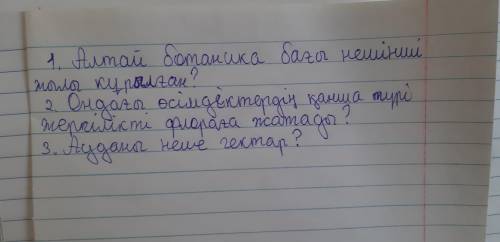 1. Алтай ботаника бағы нешінші
жылы құрылған?
2. Ондағы өсімдіктердің қанша түрі
жергілікті флораға жатады?
3. Ауданы неше гектар?